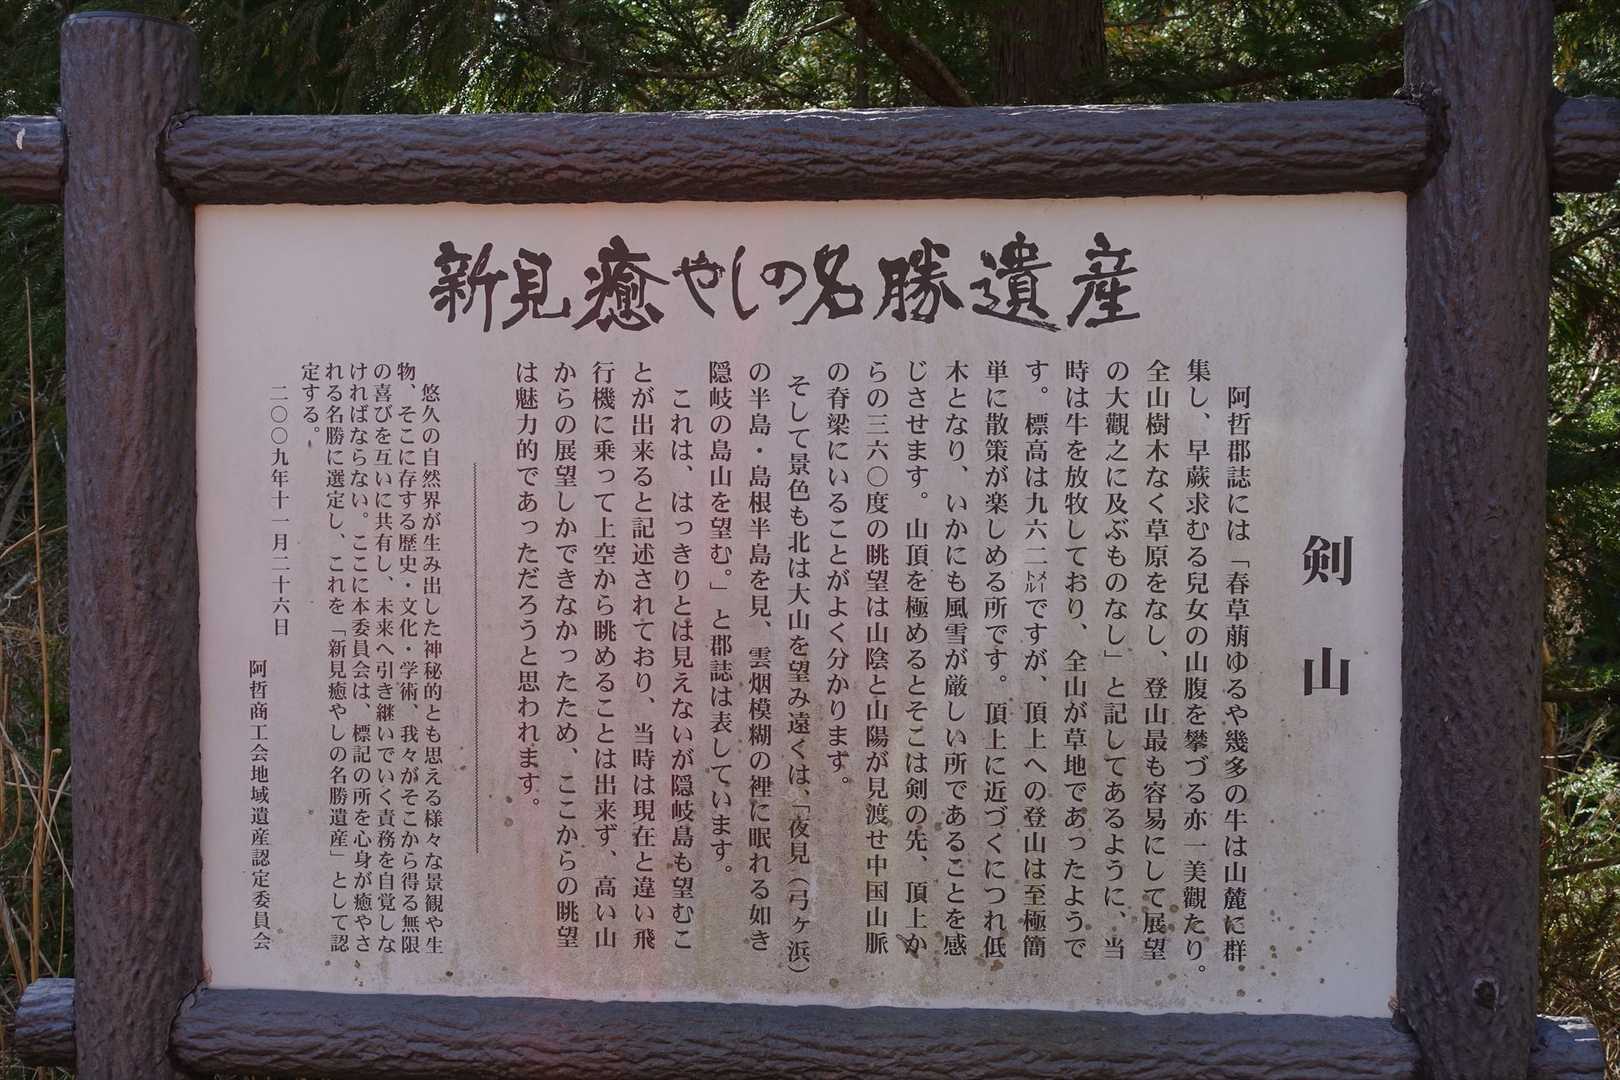 新見癒やしの名勝遺産
剣山
阿哲郡誌には「春草萠ゆるや幾多の牛は山麓に群
集し、早蕨求むる兒女の山腹を攀づる亦一美觀たり。
全山樹木なく草原をなし、登山最も容易にして展望
の大觀之に及ぶものなし」と記してあるように、当
時は牛を放牧しており、全山が草地であったようで
す。標高は九六二㍍ですが、頂上への登山は至極簡
単に散策が楽しめる所です。頂上に近づくにつれ低
木となり、いかにも風雪が厳しい所であることを感
じさせます。山頂を極めるとそこは剣の先、頂上か
らの三六〇度の眺望は山陰と山陽が見渡せ中国山脈
の脊梁にいることがよく分かります。
そして景色も北は大山を望み遠くは、「夜見（弓ヶ浜）
の半島・島根半島を見、雲烟模糊の裡に眠れる如き
隠岐の島山を望む。」と郡誌は表しています。
これは、はっきりとは見えないが隠岐島も望むこ
とが出来ると記述されており、当時は現在と違い飛
行機に乗って上空から眺めることは出来ず、高い山
からの展望しかできなかったため、ここからの眺望
は魅力的であっただろうと思われます。
悠久の自然界が生み出した神秘的とも思える様々な景観や生
物、そこに存する歴史・文化・学術、我々がそこから得る無限
の喜びを互いに共有し、未来へ引き継いでいく責務を自覚しな
ければならない。ここに本委員会は、標記の所を心身が癒やさ
れる名勝に選定し、これを「新見癒やしの名勝遺産」として認
定する。
二〇〇九年十一月二十六日
阿哲商工会地域遺産認定委員会